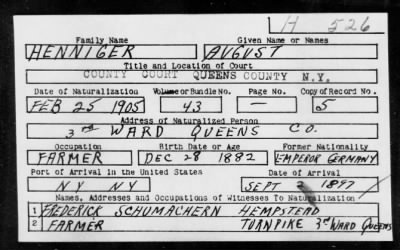 H 526
Family Name Given Name or Names
HENNIGER AUGUST
Title and Location of Court
COUNTY COURT QUEENS COUNTY N.Y.
Date of Naturalization Volume or Bundle No. Page No. Copy of Record No.
FEB 25 1905 43 — 5
Address of Naturalized Person
3rd WARD QUEENS CO.
Occupation Birth Date or Age Former Nationality
FARMER DEC 28 1882 EMPEROR GERMANY
Port of Arrival in the United States Date of Arrival
NY NY SEPT 2 1897
Names, Addresses and Occupations of Witnesses To Naturalization
1 FREDERICK SCHUMACHERN HEMPSTEAD
2 FARMER TURNPIKE 3rd WARD QUEENS